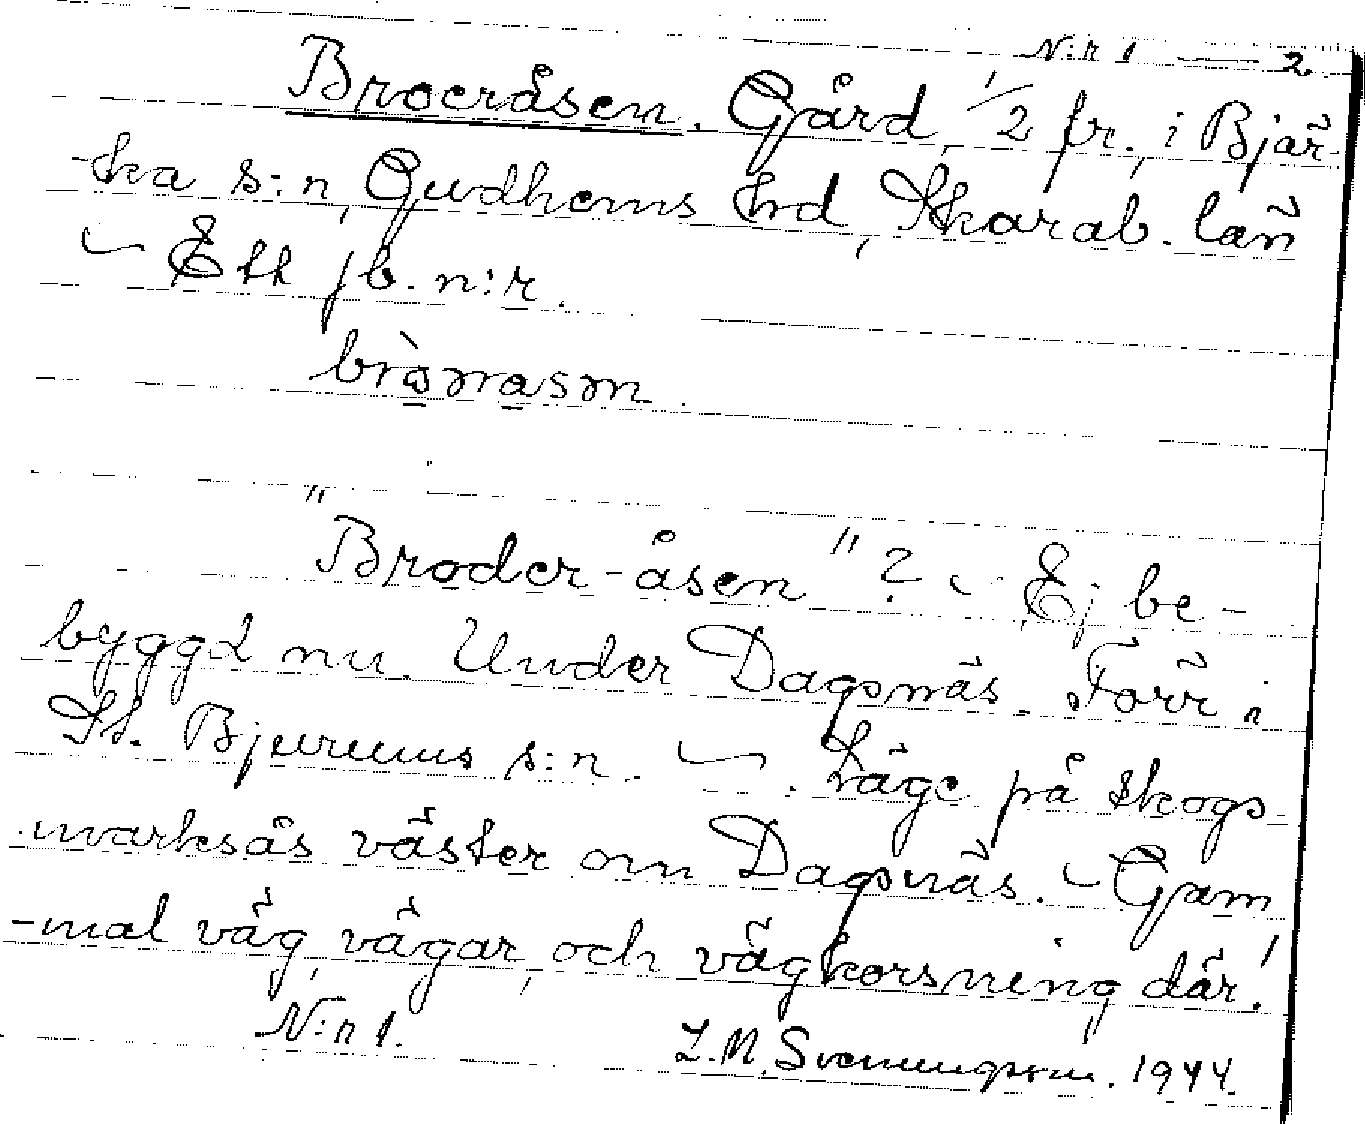 N:r 1 — 2
Broeråsen. Gård, 1/2 fr., i Bjär-
-ka s:n, Gudhems hrd, Skarab. län
~ Ett jb. n:r.
bròmasm.
"Broder-åsen"? ~ Ej be-
byggd nu. Under Dagsnäs. Förr i
St. Bjurums s:n. ~. Läge på skogs-
marksås väster om Dagsnäs. ~ Gam
-mal väg, vägar, och vägkorsning där!
N:r 1. L. M. Svenungsson. 1944.